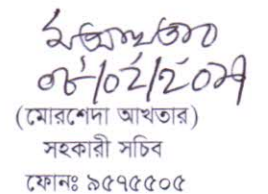 ০৮/০২/২০১৭
(মোরশেদা আখতার)
সহকারী সচিব
ফোনঃ ৯৫৭৫৫০৫